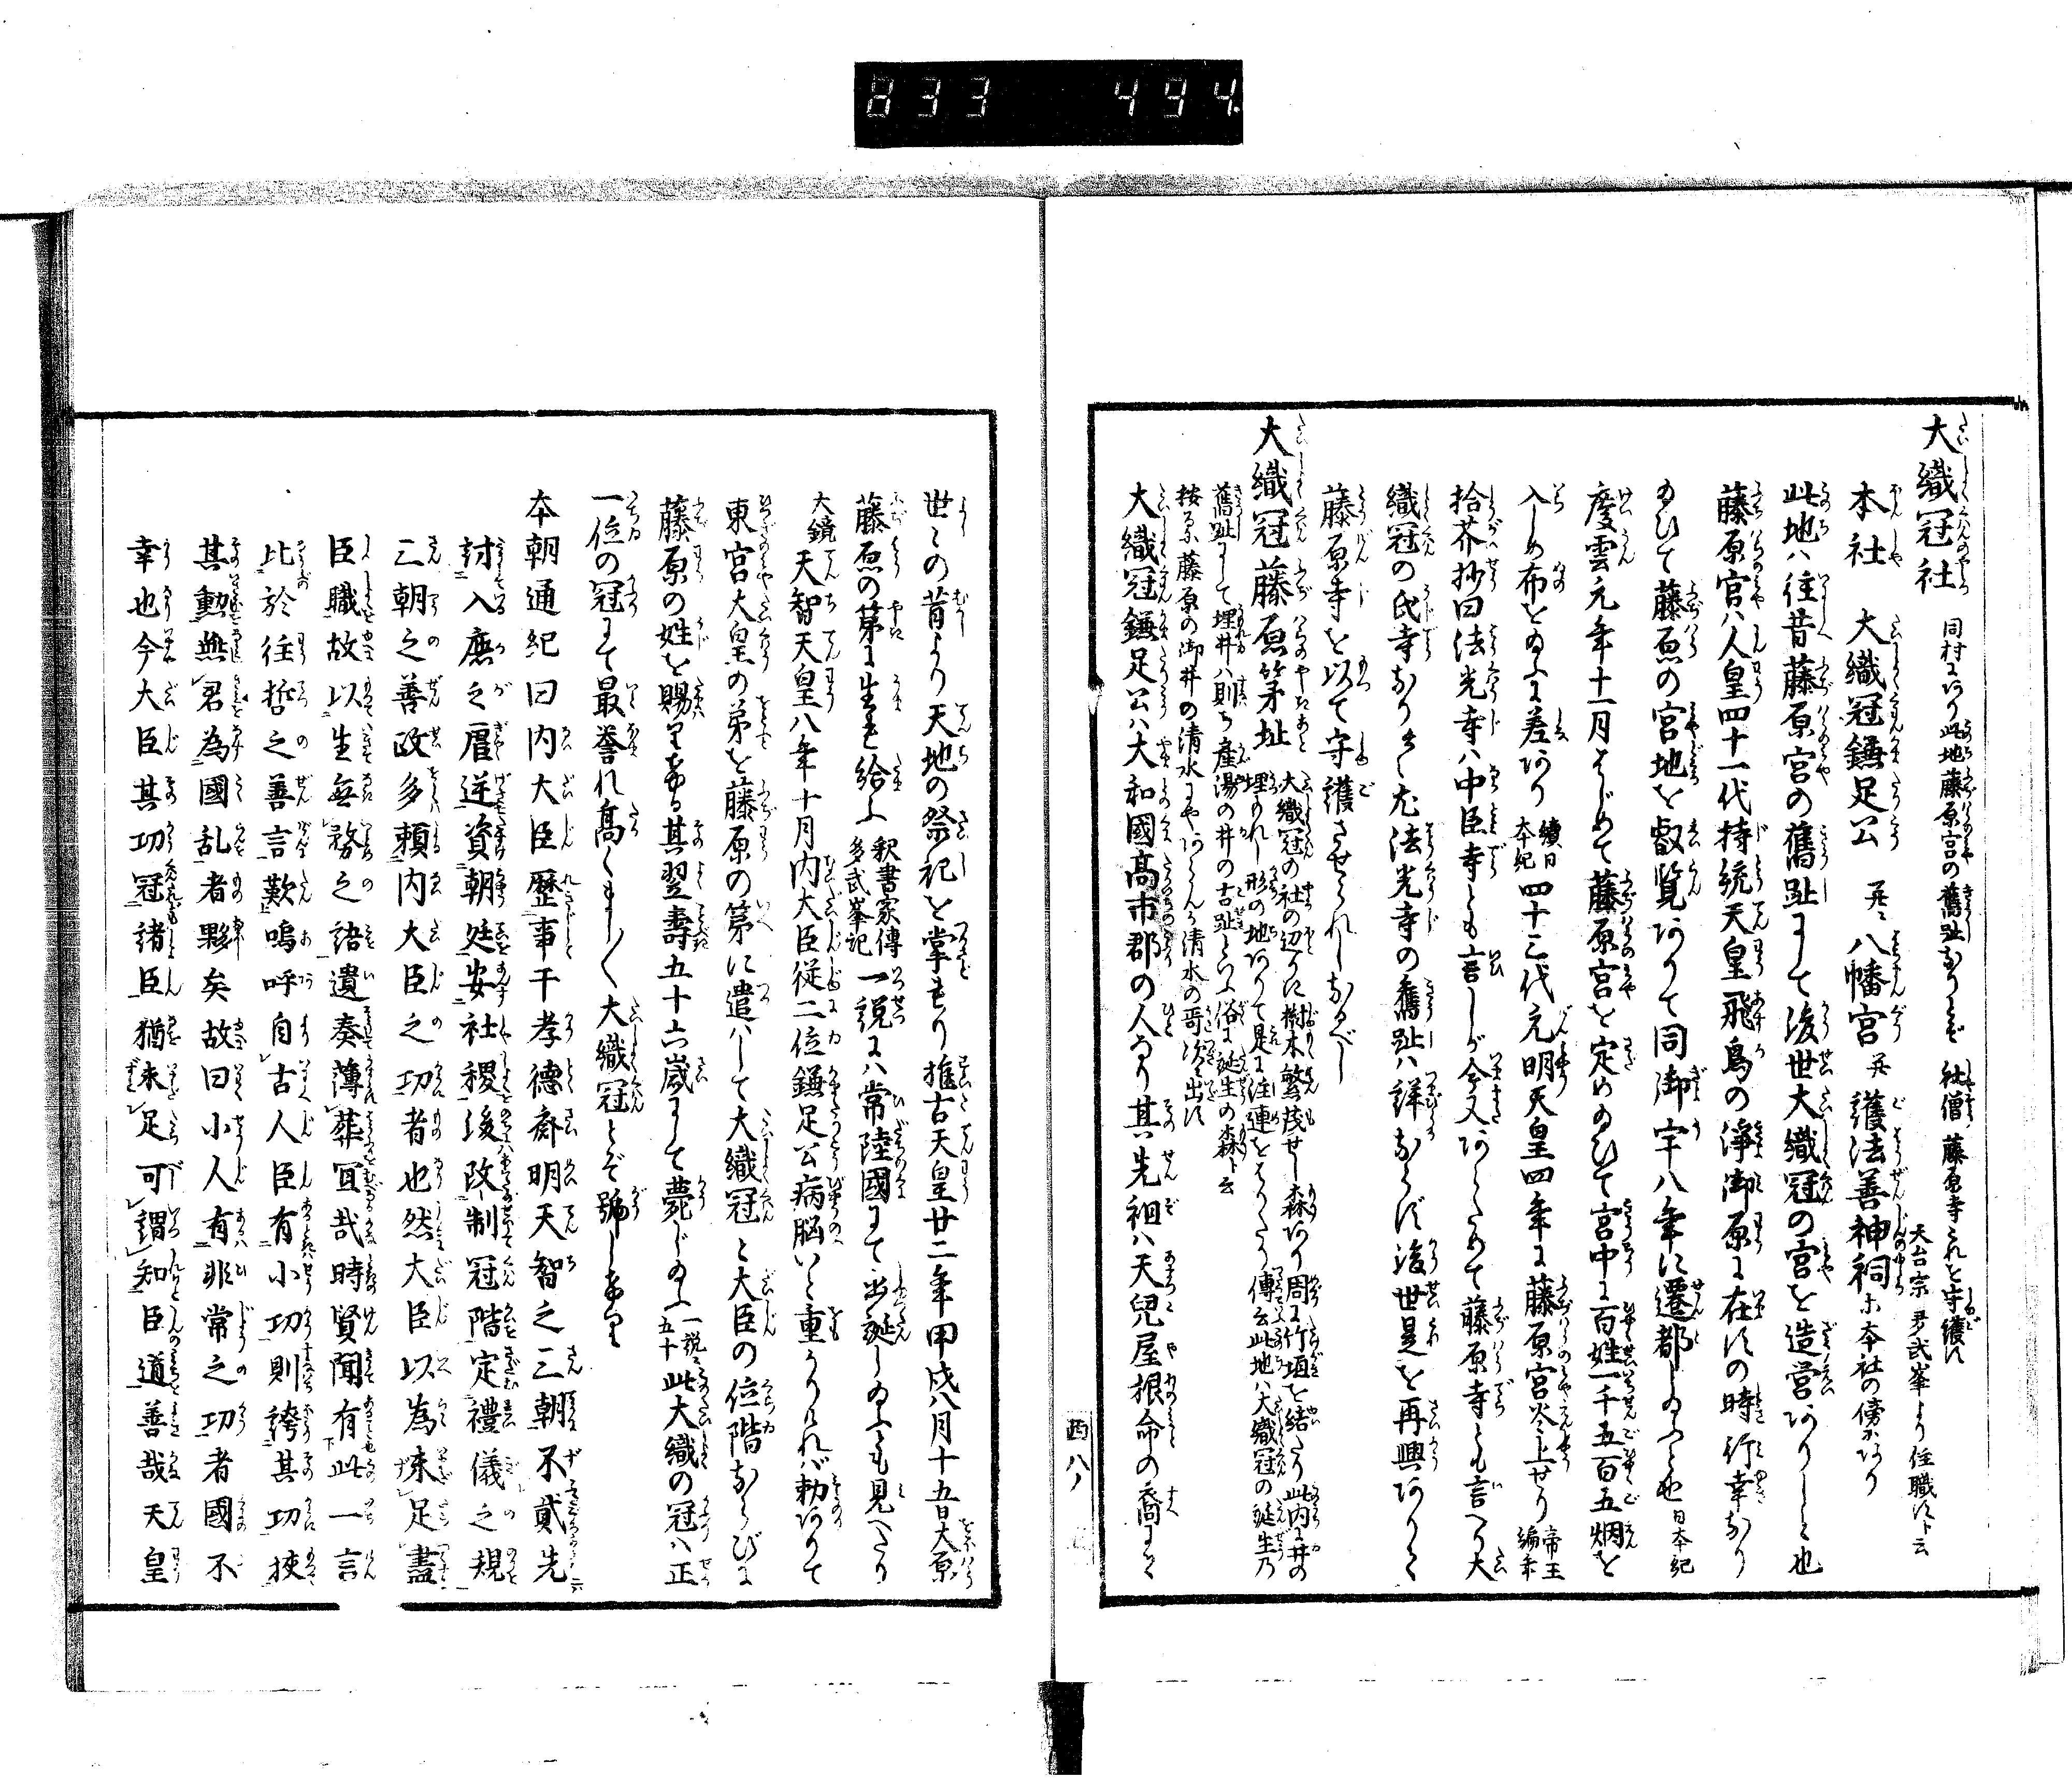 833 494
大織冠社 同村にあり此地藤原宮の舊趾なりとぞ 社僧藤原寺これを守護す
天台宗多武峯より住職すト云
本社 大織冠鎌足公 并ニ八幡宮 并護法善神祠ホ本社の傍にあり
此地ハ往昔藤原宮の舊趾にして後世大織冠の宮を造営ありしと也
藤原宮ハ人皇四十一代持統天皇飛鳥の浄御原に在すの時行幸なり
給ひて藤原の宮地を叡覧ありて同御宇八年に遷都し給ふと也 日本紀
慶雲元年十一月はじめて藤原宮を定め給ひて宮中に百姓一千五百五烟を
入しめ布を給ふに差あり 續日本紀 四十三代元明天皇四年に藤原宮炎上せり 帝王編年
拾芥抄曰法光寺ハ中臣寺とも言しが今又あらためて藤原寺とも言へり大
織冠の氏寺なりけらし尤法光寺の舊趾ハ詳ならず後世是を再興ありて
藤原寺を以て守護させられしなるべし
大織冠藤原第址 大織冠の社の辺りに樹木繁茂せし森あり周に竹垣を結たり此内に井の
埋もれし形の地ありて是に注連をはりたり傳云此地ハ大織冠の誕生乃
舊趾にして埋井ハ則ち産湯の井の古趾といふ俗に誕生の森ト云
按るに藤原の御井の清水にやあらんか清水の哥次に出す
大織冠鎌足公ハ大和國髙市郡の人なり其先祖ハ天兒屋根命の裔にて
酉 八ノ
世々の昔より天地の祭祀を掌もり推古天皇廿二年甲戌八月十五日大原
藤原の第に生れ給ふ 釈書家傳多武峯記 一説にハ常陸國にて出誕し給ふも見へたり
大鏡 天智天皇八年十月内大臣従二位鎌足公病脳いと重かりけれバ勅ありて
東宮大皇の弟を藤原の第に遣ハして大織冠と大臣の位階ならびに
藤原の姓を賜りける其翌壽五十六歳にして薨じ給ふ 一説ニ五十 此大織の冠ハ正
一位の冠にて最誉れ髙くまし〱大織冠とぞ號しける
本朝通紀曰内大臣歴事于孝德齋明天智之三朝不貳先
討入鹿之暦逆資朝廷安社稷後改制冠階定禮儀之規
三朝之善政多頼内大臣之功者也然大臣以為未足盡
臣職故以生無務之語遺奏薄葬冝哉時賢聞有此一言
比於往哲之善言歎嗚呼自古人臣有小功則誇其功挾
其勳無君為國乱者夥矣故曰小人有非常之功者國不
幸也今大臣其功冠諸臣猶未足可謂知臣道善哉天皇